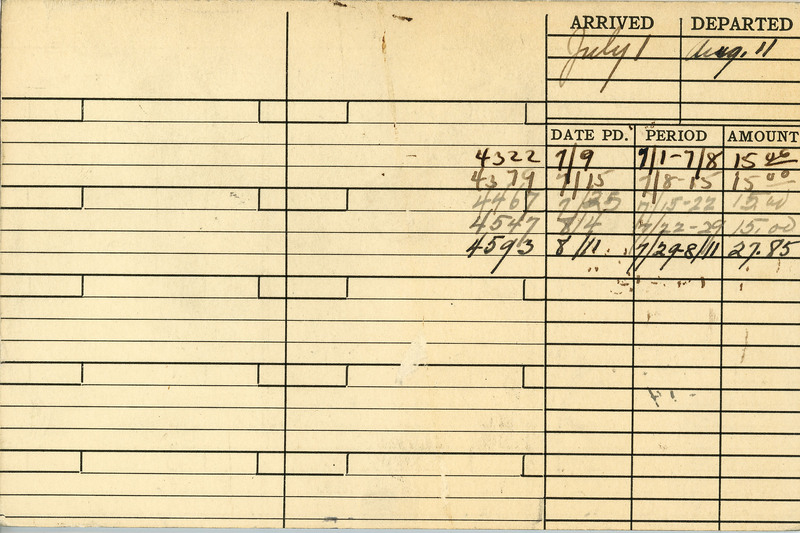 ARRIVED DEPARTED
July 1 Aug. 11
DATE PD. PERIOD AMOUNT
4322 7/9 7/1-7/8 15 00
4379 7/15 7/8-15 15 00
4467 7/25 7/15-22 15.00
4547 8/4 7/22-29 15.00
4593 8/11 7/29-8/11 27.85